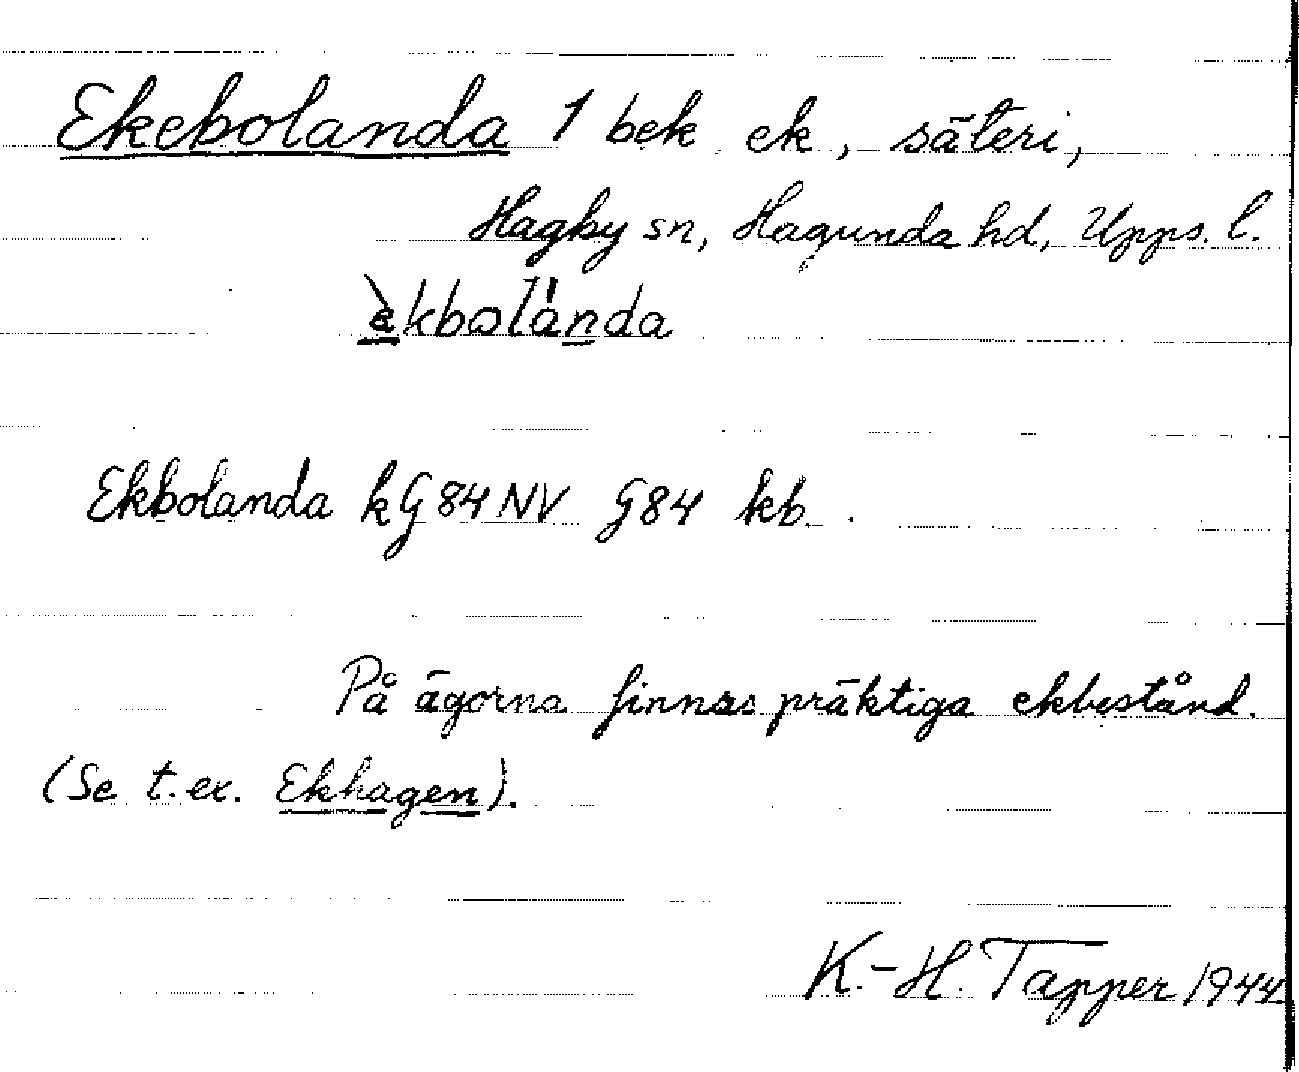 Ekebolanda 1 bek ek, säteri,
Hagby sn, Hagunda hd, Upps. l.
èkbolánda
Ekbolanda kG84NV G84 kb.
På ägorna finnas präktiga ekbestånd.
(Se t.ex. Ekhagen).
K.-H. Tapper 1944